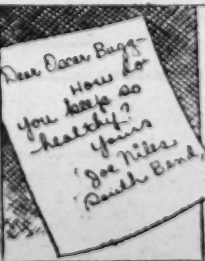 Dear Oscar Bugg–
How do
you keep so
healthy?
Yours
Joe Niles
South Bend,